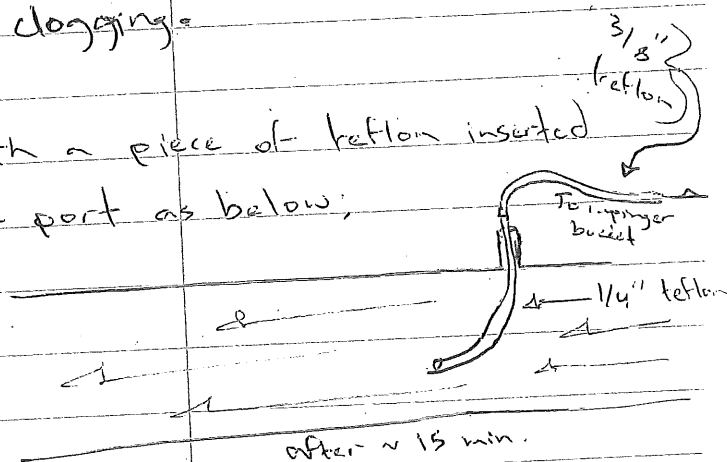 clogging.
3/8"
teflon
th a piece of teflon inserted
port as below;
To impinger
bucket
1/4" teflon
after ~ 15 min.